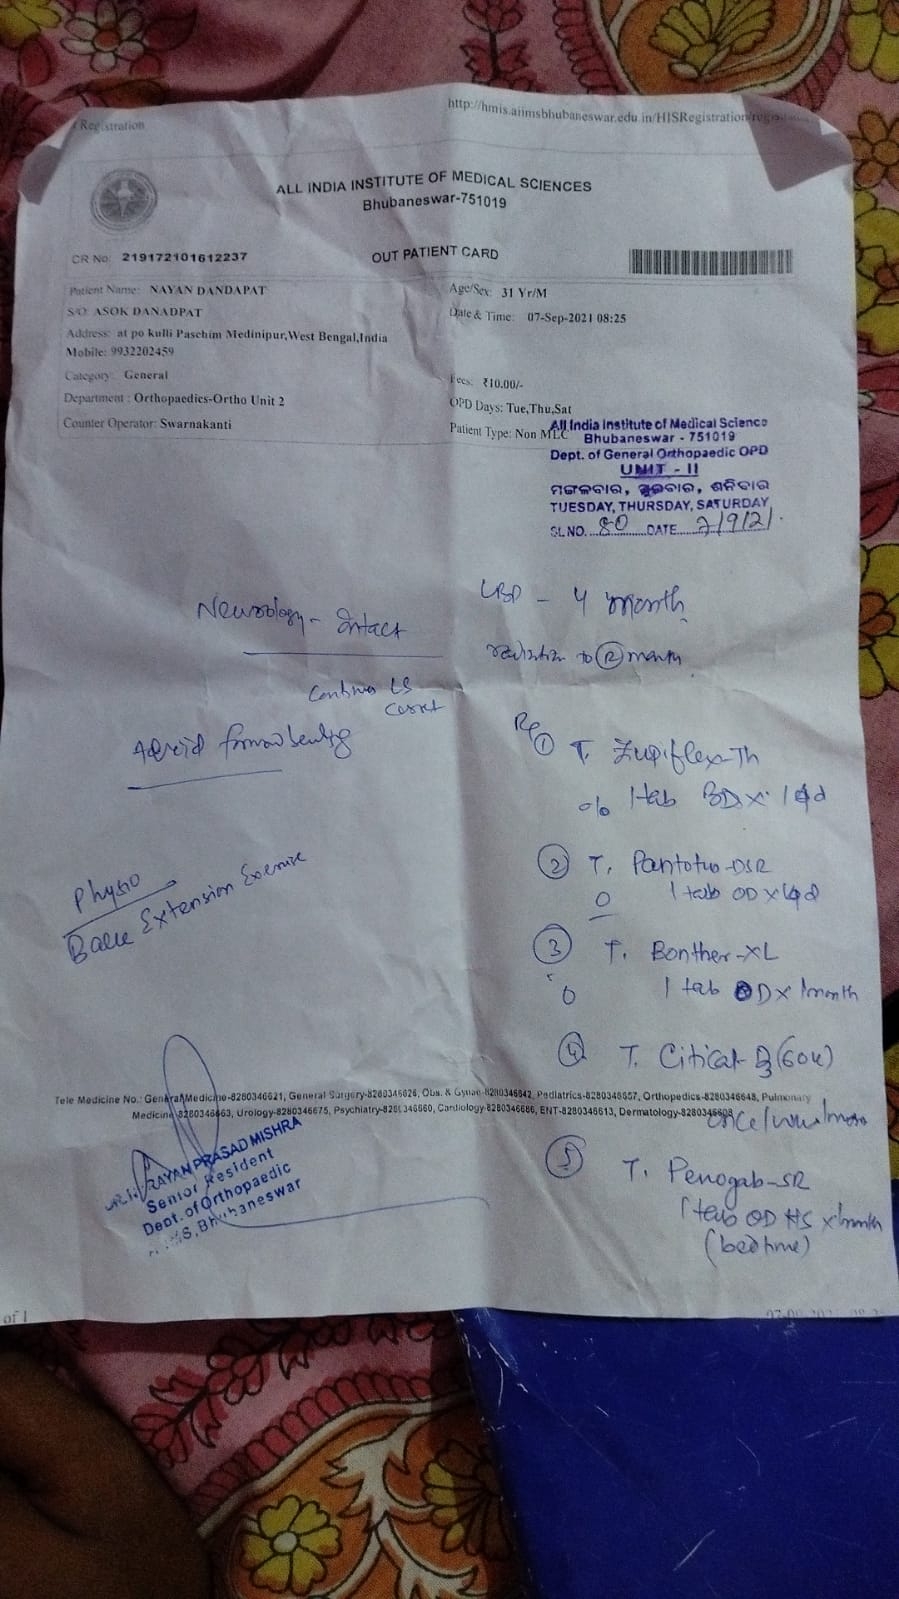 Registration
http://hmis.aiimsbhubaneswar.edu.in/HISRegistration/
ALL INDIA INSTITUTE OF MEDICAL SCIENCES
Bhubaneswar-751019
CR No: 219172101612237
OUT PATIENT CARD
Patient Name: NAYAN DANDAPAT
Age/Sex: 31 Yr/M
S/O: ASOK DANADPAT
Date & Time: 07-Sep-2021 08:25
Address: at po kulli Paschim Medinipur,West Bengal,India
Mobile: 9932202459
Category: General
Fees: ₹10.00/-
Department : Orthopaedics-Ortho Unit 2
OPD Days: Tue,Thu,Sat
Counter Operator: Swarnakanti
Patient Type: Non MLC
All India Institute of Medical Science
Bhubaneswar - 751019
Dept. of General Orthopaedic OPD
UNIT - II
ମଙ୍ଗଳବାର, ଗୁରୁବାର, ଶନିବାର
TUESDAY, THURSDAY, SATURDAY
SL.NO. 80 DATE 7/9/21.
LBP - 4 month
Neurology - Intact
to R
Continue LS
Corset
Avoid forward bending
Physio
Back Extension Exercise
Rx
1 T.
1 tab BD x 14d
2 T. -DSR
1 tab OD x 14d
3 T. Bonther-XL
1 tab OD x 1month
4 T. Citical-D3 (60k)
once/
5 T. Penogab-SR
1 tab OD HS x 1month
(bedtime)
Tele Medicine No.: General Medicine-8280346621, General Surgery-8280346626, Obs. & Gynae-8280346642, Pediatrics-8280346657, Orthopedics-8280346648, Pulmonary
Medicine-8280346663, Urology-8280346675, Psychiatry-8280346660, Cardiology-8280346686, ENT-8280346613, Dermatology-8280346608
PRASAD MISHRA
Senior Resident
Dept. of Orthopaedic
Bhubaneswar
of 1